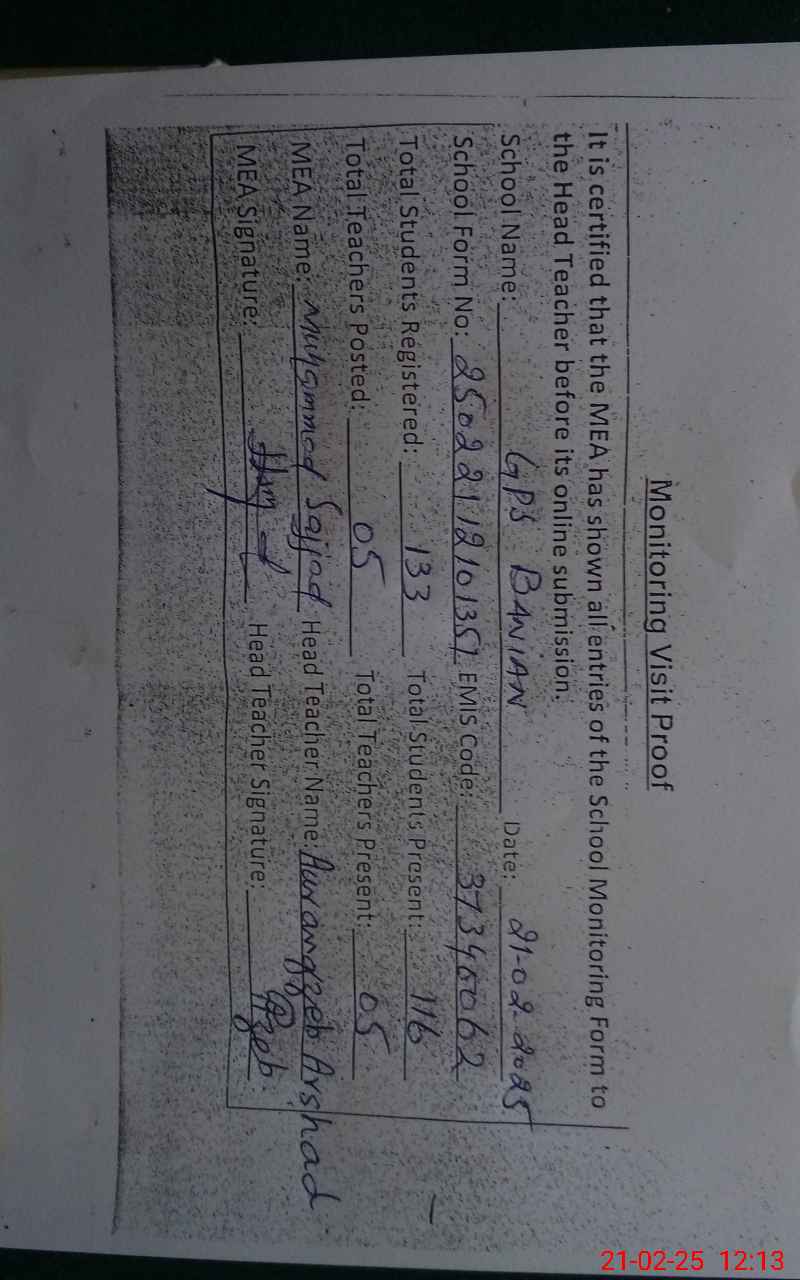 Monitoring Visit Proof
It is certified that the MEA has shown all entries of the School Monitoring Form to
the Head Teacher before its online submission.
School Name: GPS BANIAN Date: 21-02-2025
School Form No: 25022112101351 EMIS Code: 37340062
Total Students Registered: 133 Total Students Present: 116
Total Teachers Posted: 05 Total Teachers Present: 05
MEA Name: Muhammad Sajjad Head Teacher Name: Aurangzeb Arshad
MEA Signature: Head Teacher Signature: @zeb
21-02-25 12:13